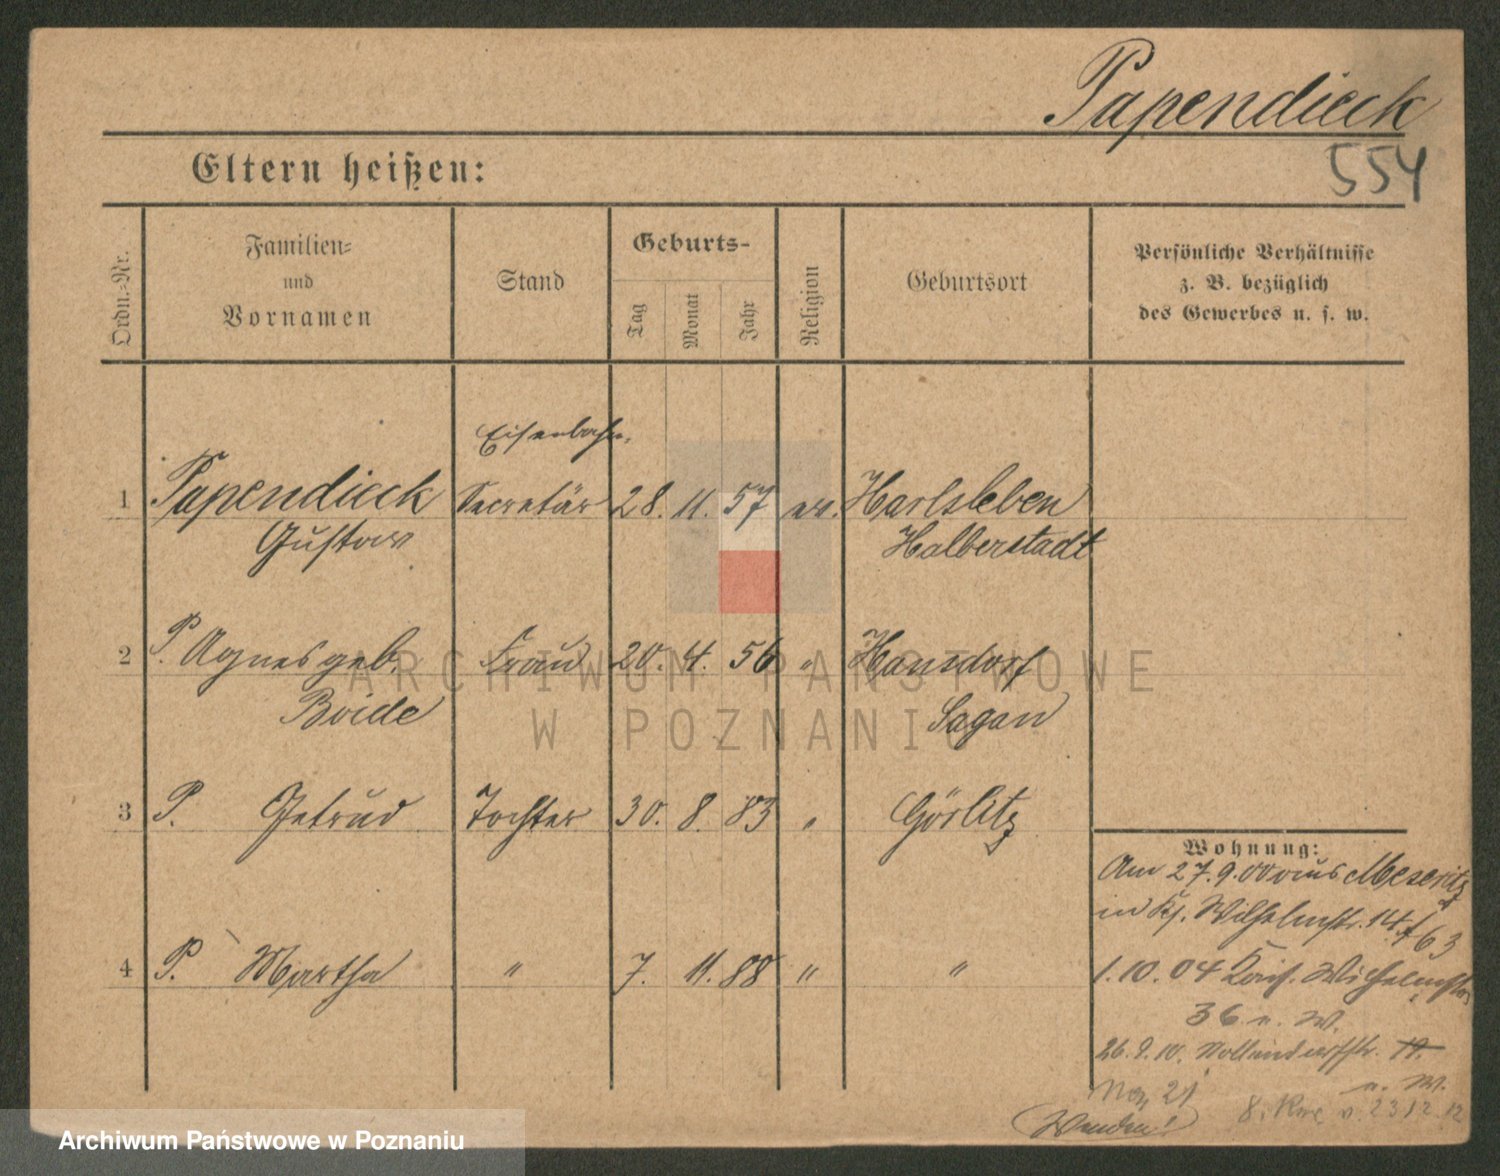 Papendieck
554
Eltern heißen:
Ordn.-Nr.
Familien-
und
Vornamen
Stand
Geburts-
Tag
Monat
Jahr
Religion
Geburtsort
Persönliche Verhältnisse
z. B. bezüglich
des Gewerbes u. s. w.
Eisenbahn-
1 Papendieck Secretär 28. 11. 57 ev. Harsleben
Gustav Halberstadt
2 P. Agnes geb. Frau 20. 4. 56 " Hansdorf
Boide Sagan
3 P. Getrud Tochter 30. 8. 83 " Görlitz
4 P. Martha " 7. 11. 88 " "
Wohnung:
Am 27.9.00 aus Meseritz
in Wilhelmstr. 14
1.10.04 Wilhelmstr.
36 n. W.
26.9.10. Nollendorfstr. 11.
n. W.
21
Wenden!
23 12 12
ARCHIWUM PAŃSTWOWE
W POZNANIU
Archiwum Państwowe w Poznaniu